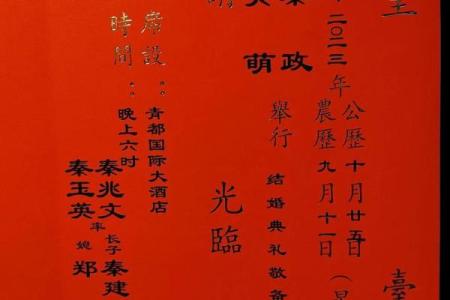 二〇二三年
公歷十月廿五日（星
農歷九月十一日
政
萌
舉行
結婚典禮敬备
光臨
席設：青都国际大酒店
時間：晚上六时
秦兆文
秦玉英
率
长子秦建
媳郑